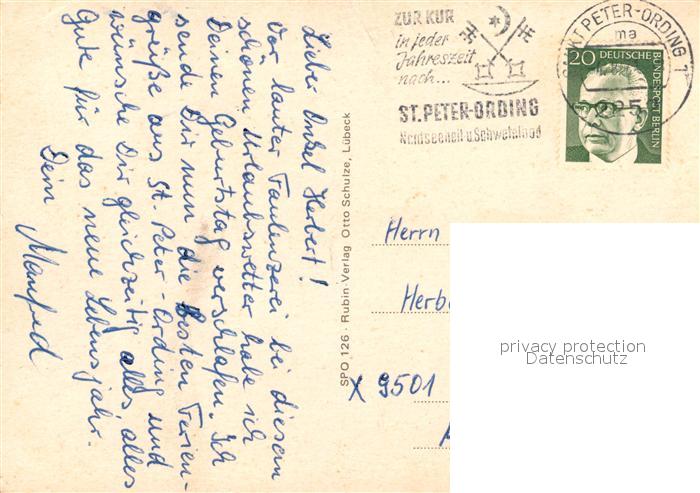 Lieber Onkel Herbert!
Vor lauter Faulenzerei bei diesem
schönen Urlaubswetter habe ich
Deinen Geburtstag verschlafen. Ich
sende Dir nun die besten Ferien-
grüße aus St. Peter-Ording und
wünsche Dir gleichzeitig alles, alles
Gute für das neue Lebensjahr.
Dein
Manfred
SPO 126 · Rubin-Verlag Otto Schulze, Lübeck
ZUR KUR
in jeder
Jahreszeit
nach...
ST. PETER-ORDING
Nordseeheil- u. Schwefelbad
SANKT PETER-ORDING 1
ma
20 DEUTSCHE BUNDESPOST BERLIN
Herrn
Herb
X 9501
privacy protection
Datenschutz